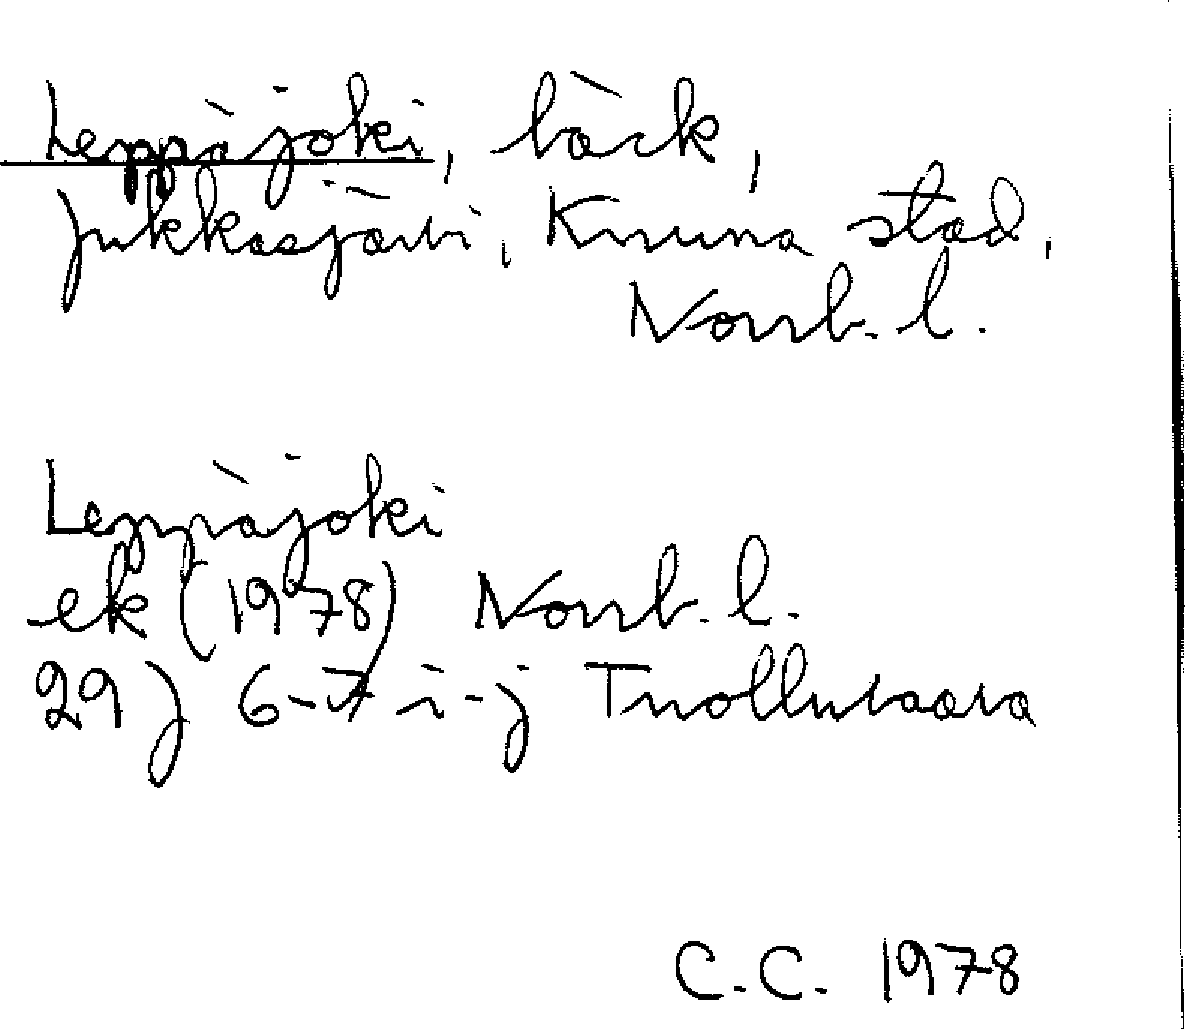 Leppäjoki, bäck,
Jukkasjärvi, Kiruna stad,
Norrb. l.
Leppäjoki
ek (1978) Norrb. l.
29 J 6-7 i-j Tuolluvaara
C.C. 1978